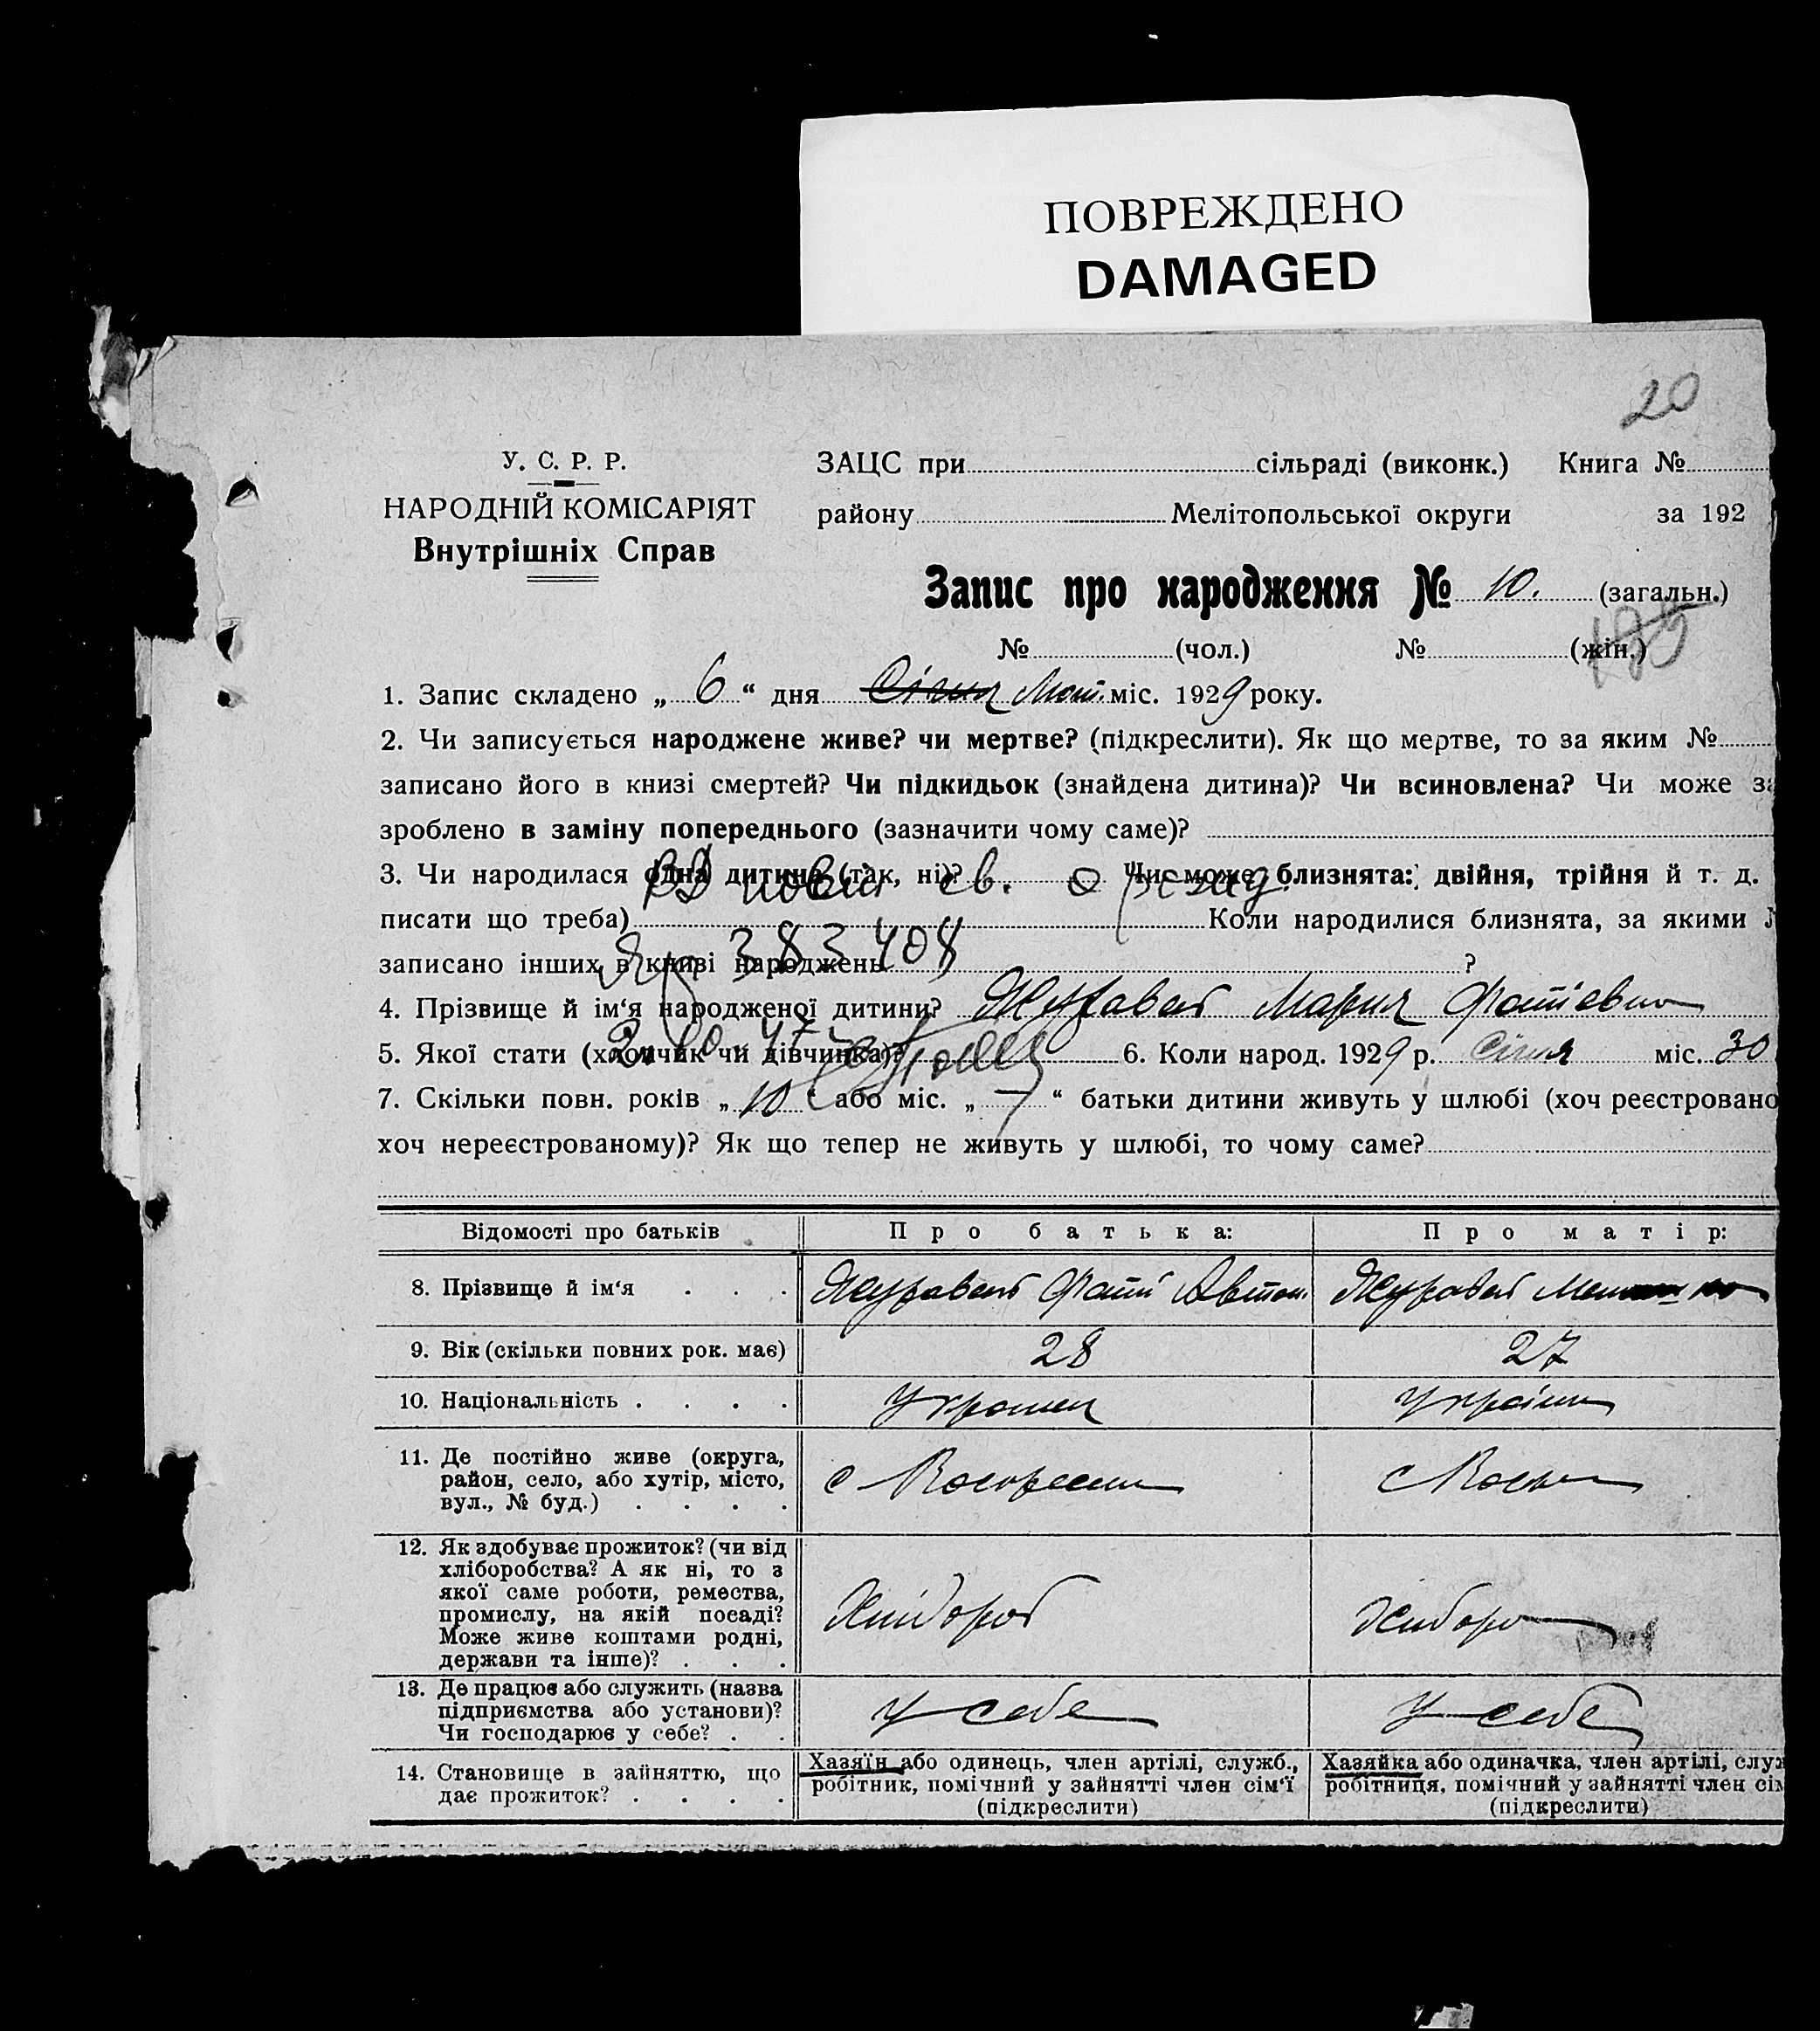 ПОВРЕЖДЕНО
DAMAGED
20
У. С. Р. Р.
НАРОДНІЙ КОМІСАРІЯТ
Внутрішніх Справ
ЗАЦС при сільраді (виконк.) Книга №
району Мелітопольської округи за 192
Запис про народження № 10. (загальн.)
№ (чол.) № (жін.)
1. Запис складено „ 6 “ дня Січня Лют. міс. 1929 року.
2. Чи записується народжене живе? чи мертве? (підкреслити). Як що мертве, то за яким №
записано його в книзі смертей? Чи підкидьок (знайдена дитина)? Чи всиновлена? Чи може за
зроблено в заміну попереднього (зазначити чому саме)?
3. Чи народилася одна дитина (так, ні)? Чи може близнята: двійня, трійня й т. д.
св. о
писати що треба) Коли народилися близнята, за якими
383408
записано інших в книзі народжень ?
4. Прізвище й ім‘я народженої дитини? Журавель Мария Фотіевна
5. Якої стати (хлопчик чи дівчинка)? 6. Коли народ. 1929 р. Січня міс. 30
7. Скільки повн. років „ 10 “ або міс. „ — “ батьки дитини живуть у шлюбі (хоч реєстровано
хоч нереєстрованому)? Як що тепер не живуть у шлюбі, то чому саме?
Відомості про батьків Про батька: Про матір:
8. Прізвище й ім‘я Журавель Фотій Журавель
9. Вік (скільки повних рок. має) 28 27
10. Національність Украинец Україн
11. Де постійно живе (округа,
район, село, або хутір, місто,
вул., № буд.)
с с
12. Як здобуває прожиток? (чи від
хліборобства? А як ні, то з
якої саме роботи, ремества,
промислу, на якій посаді?
Може живе коштами родні,
держави та інше)?
Хлібороб Хлиборо
13. Де працює або служить (назва
підприємства або установи)?
Чи господарює у себе?
У себе У себе
14. Становище в зайняттю, що
дає прожиток?
Хазяїн або одинець, член артілі, служб.,
робітник, помічний у зайнятті член сім‘ї
(підкреслити)
Хазяйка або одиначка, член артілі, служ
робітниця, помічний у зайнятті член сім
(підкреслити)